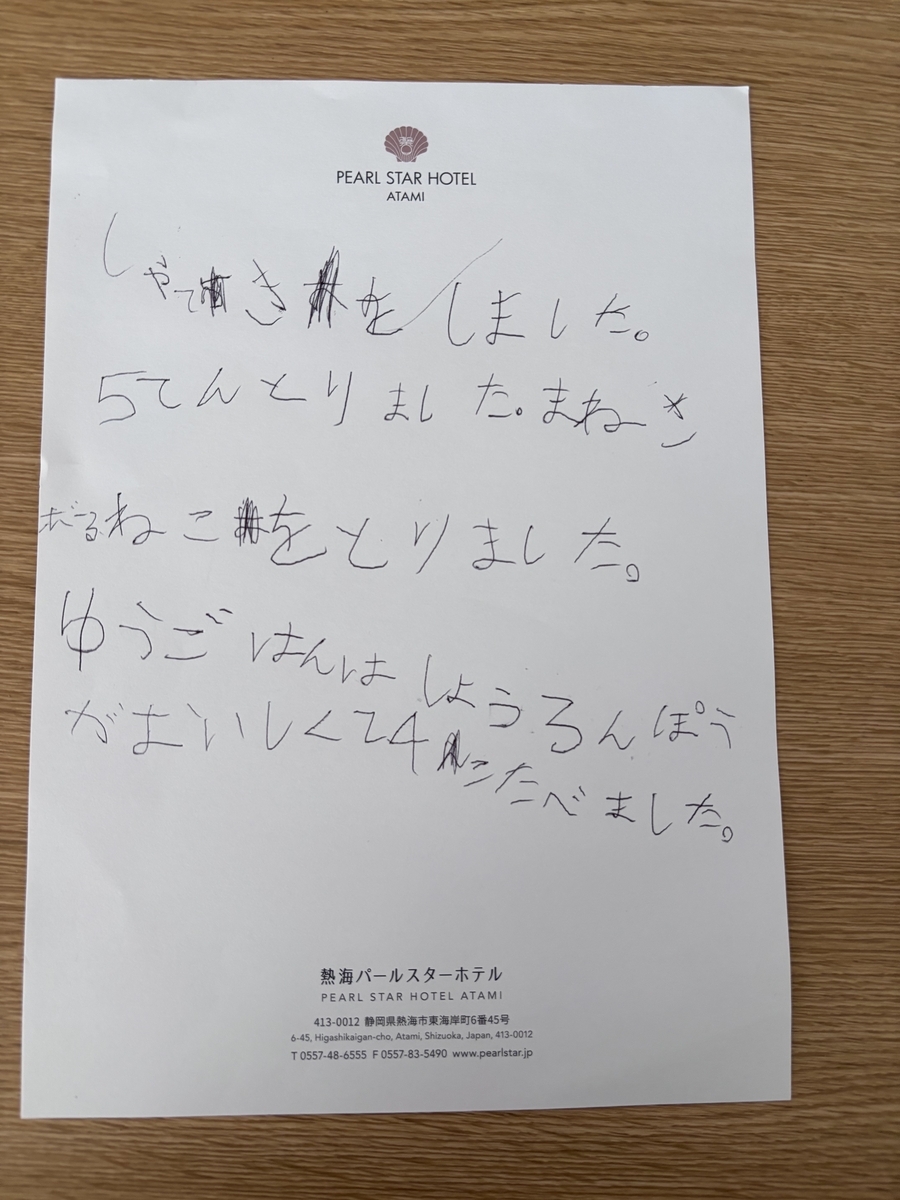 PEARL STAR HOTEL
ATAMI
しゃてきをしました。
5てんとりました。まねき
ねこをとりました。
ゆうごはんはしょうろんぽう
がおいしくて4こたべました。
熱海パールスターホテル
PEARL STAR HOTEL ATAMI
413-0012 静岡県熱海市東海岸町6番45号
6-45, Higashikaigan-cho, Atami, Shizuoka, Japan, 413-0012
T 0557-48-6555 F 0557-83-5490 www.pearlstar.jp